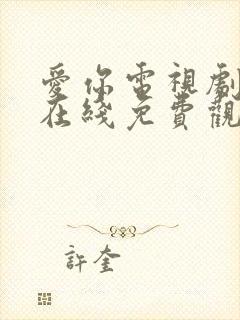 愛你電視劇
在綫免費觀
許奎